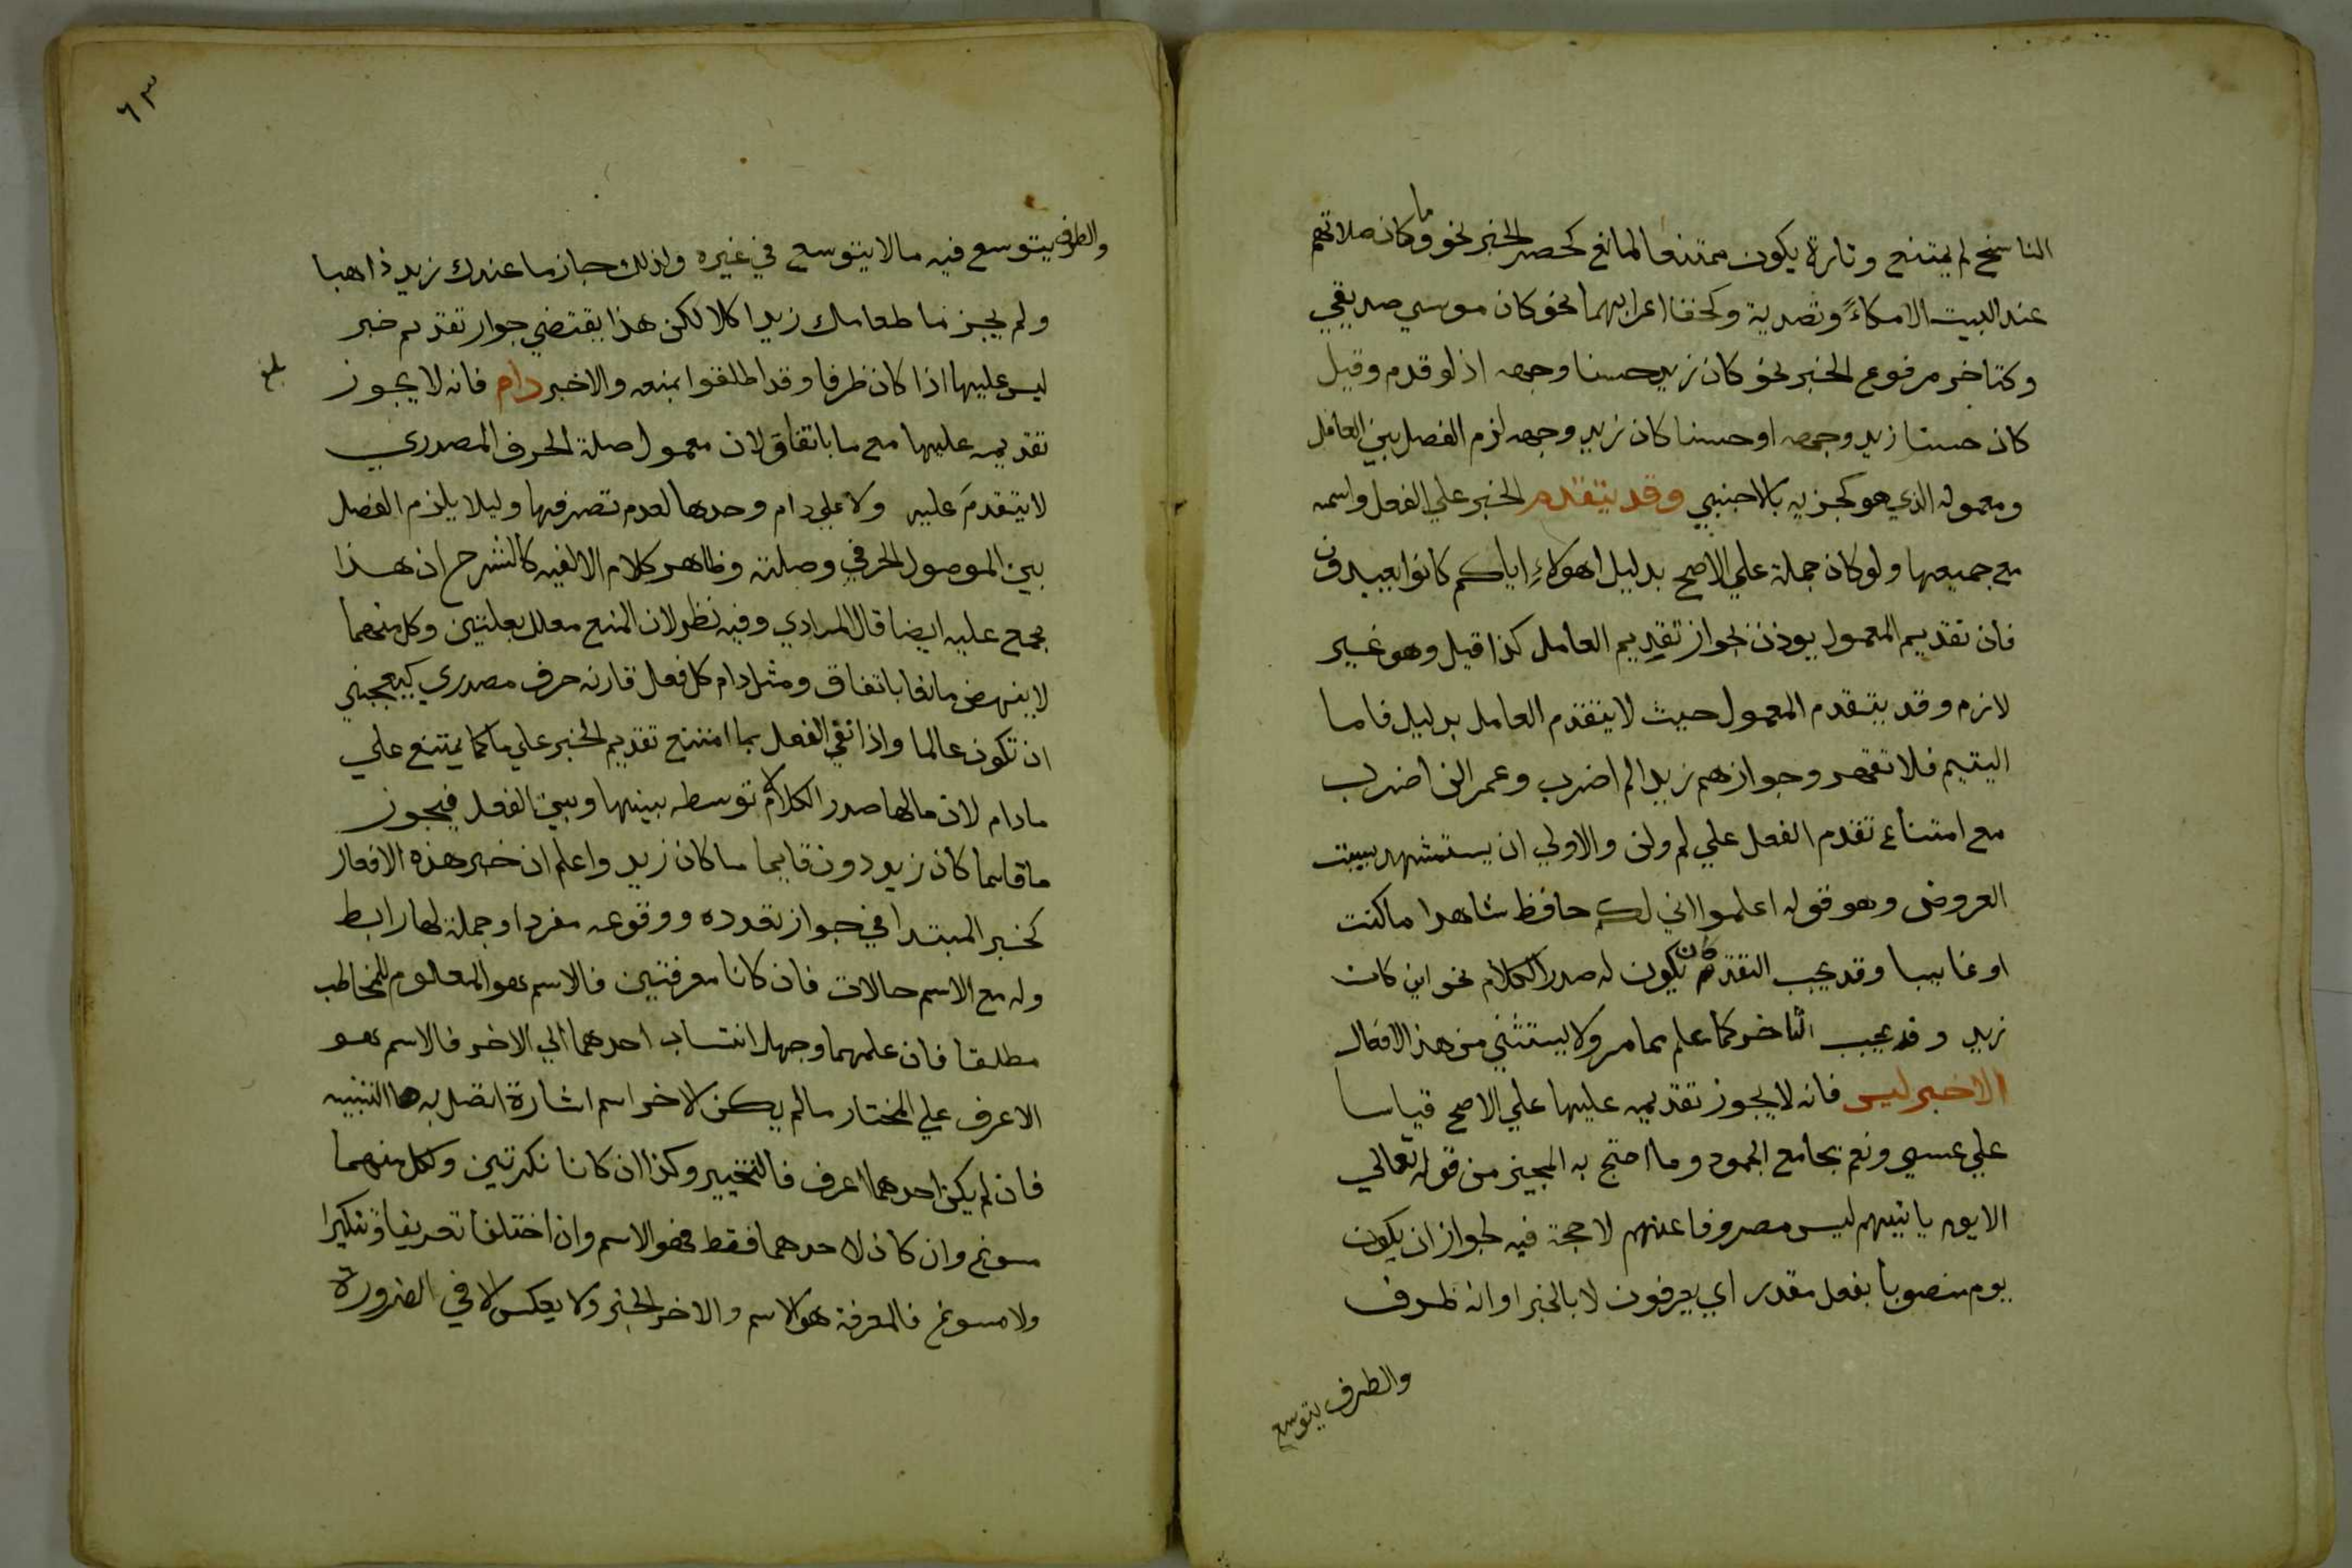 الناسخ لم يمتنع وتارة يكون ممتنعا لمانع كحصر الخبر نحو وما كان صلاتهم
عند البيت الا مكاءً وتصدية وكخفا اعرابهما نحو كان موسي صديقي
وكتاخر مرفوع الخبر نحو كان زيد حسنا وجهه اذ لو قدم وقيل
كان حسنا زيد وجهه او حسنا كان زيد وجهه لزم الفصل بين العامل
ومعموله الذي هو كجزيه بالاجنبي وقد يتقدم الخبر علي الفعل واسمه
مع جميعها ولو كان جملة علي الاصح بدليل اهولاءِ اياكم كانوا يعبدون
فان تقديم المعمول يوذن بجواز تقديم العامل كذا قيل وهو غير
لازم وقد يتقدم المعمول حيث لا يتقدم العامل بدليل فاما
اليتيم فلا تقهر وجوازهم زيدا لم اضرب وعمرا لن اضرب
مع امتناع تقدم الفعل علي لم ولن والاولي ان يستشهد ببيت
العروض وهو قوله اعلموا اني لكم حافظ شاهدا ما كنت
او غايبا وقد يجب التقدم كان يكون له صدر الكلام نحو اين كان
زيد وقد يجب التاخر كما علم مما مر ولا يستثني من هذه الافعال
الا خبر ليس فانه لا يجوز تقديمه عليها علي الاصح قياسا
علي عسي ونعم بجامع الجمود وما احتج به المجيز من قوله تعالي
الا يوم ياتيهم ليس مصروفا عنهم لا حجة فيه لجواز ان يكون
يوم منصوبا بفعل مقدر اي يعرفون لا بالخبر او انه ظرف
والظرف يتوسع
٦٣
والظرف يتوسع فيه ما لا يتوسع في غيره ولذلك جاز ما عندك زيد ذاهبا
ولم يجز ما طعامك زيد اكلا لكن هذا يقتضي جواز تقديم خبر
ليس عليها اذا كان ظرفا وقد اطلقوا بمنعه والا خبر دام فانه لا يجوز
بلغ
تقديمه عليها مع ما باتفاق لان معمول صلة الحرف المصدري
لا يتقدم عليه ولا علي دام وحدها لعدم تصرفها وليلا يلزم الفصل
بين الموصول الحرفي وصلته وظاهر كلام الالفيه كالشرح ان هذا
مجمع عليه ايضا قال المرادي وفيه نظر لان المنع معلل بعلتين وكل منهما
لا ينهض مانعا باتفاق ومثل دام كل فعل قارنه حرف مصدري كيعجبني
ان تكون عالما واذا نفي الفعل بما امتنع تقديم الخبر علي ما كما يمتنع علي
ما دام لان ما لها صدر الكلام لا توسطه بينها وبين الفعل فيجوز
ما قايما كان زيد دون قايما ما كان زيد واعلم ان خبر هذه الافعال
كخبر المبتدا في جواز تعدده ووقوعه مفردا وجملة لها رابط
وله مع الاسم حالات فان كانا معرفتين فالاسم هو المعلوم للمخاطب
مطلقا فان علمهما وجهل انتساب احدهما الي الاخر فالاسم هو
الاعرف علي المختار ما لم يكن الاخر اسم اشارة اتصل به ها التنبيه
فان لم يكن احدهما اعرف فالتخيير وكذا ان كانا نكرتين ولكل منهما
مسوغ وان كان لاحدهما فقط فهو الاسم وان اختلفا تعريفا وتنكيرا
ولا مسوغ فالمعرفة هو الاسم والاخر الخبر ولا يعكس الا في الضرورة